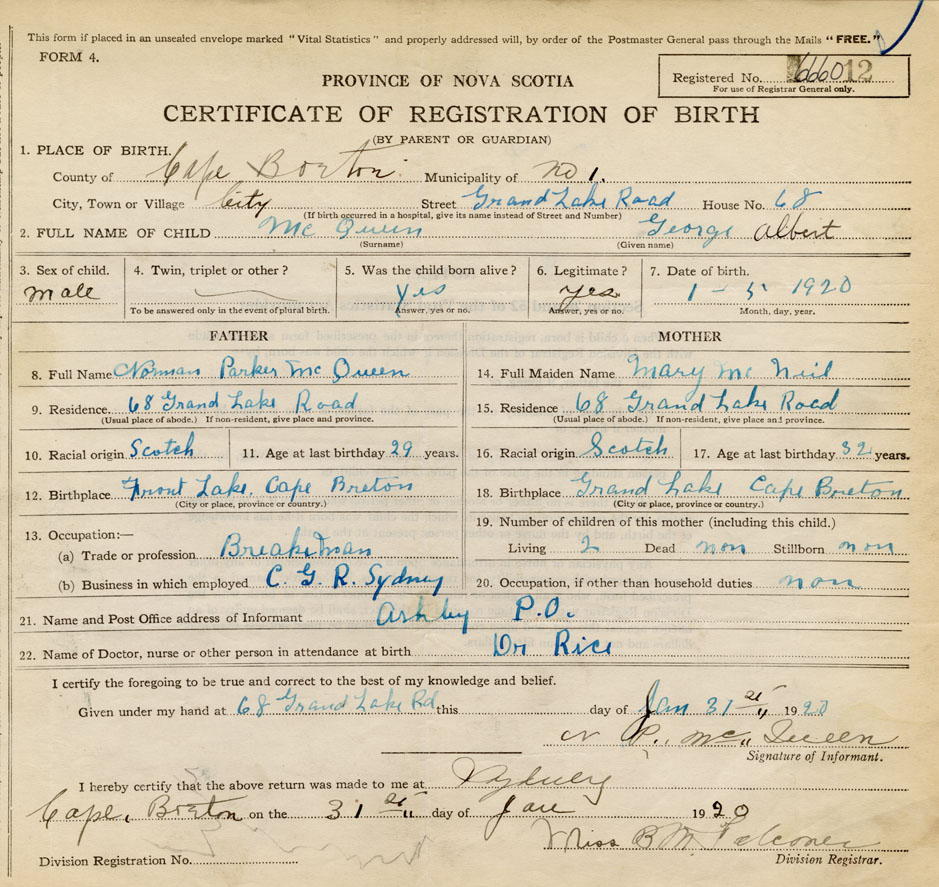 This form if placed in an unsealed envelope marked "Vital Statistics" and properly addressed will, by order of the Postmaster General pass through the Mails "FREE."
FORM 4.
PROVINCE OF NOVA SCOTIA
Registered No. 666012
For use of Registrar General only.
CERTIFICATE OF REGISTRATION OF BIRTH
(BY PARENT OR GUARDIAN)
1. PLACE OF BIRTH.
County of Cape Breton. Municipality of no 1.
City, Town or Village City Street Grand Lake Road House No. 68
(If birth occurred in a hospital, give its name instead of Street and Number)
2. FULL NAME OF CHILD Mc Queen George Albert
(Surname) (Given name)
3. Sex of child. 4. Twin, triplet or other? 5. Was the child born alive? 6. Legitimate? 7. Date of birth.
male Yes yes 1 - 5 1920
To be answered only in the event of plural birth. Answer, yes or no. Answer, yes or no. Month, day, year.
FATHER MOTHER
8. Full Name Norman Parker Mc Queen 14. Full Maiden Name Mary Mc Neil
9. Residence. 68 Grand Lake Road 15. Residence 68 Grand Lake Road
(Usual place of abode.) If non-resident, give place and province. (Usual place of abode.) If non-resident, give place and province.
10. Racial origin Scotch 11. Age at last birthday 29 years. 16. Racial origin Scotch 17. Age at last birthday 32 years.
12. Birthplace Front Lake, Cape Breton 18. Birthplace Grand Lake Cape Breton
(City or place, province or country.) (City or place, province or country.)
13. Occupation:— 19. Number of children of this mother (including this child.)
(a) Trade or profession Breakman Living 2 Dead non Stillborn non
(b) Business in which employed C. G. R. Sydney 20. Occupation, if other than household duties non
21. Name and Post Office address of Informant Ashby P.O.
22. Name of Doctor, nurse or other person in attendance at birth Dr Rice
I certify the foregoing to be true and correct to the best of my knowledge and belief.
Given under my hand at 68 Grand Lake Rd this day of Jan 31st 1920
N P. McQueen
Signature of Informant.
I hereby certify that the above return was made to me at Sydney
Cape Breton on the 31st day of Jan 1920
Miss B M Falconer
Division Registration No. Division Registrar.